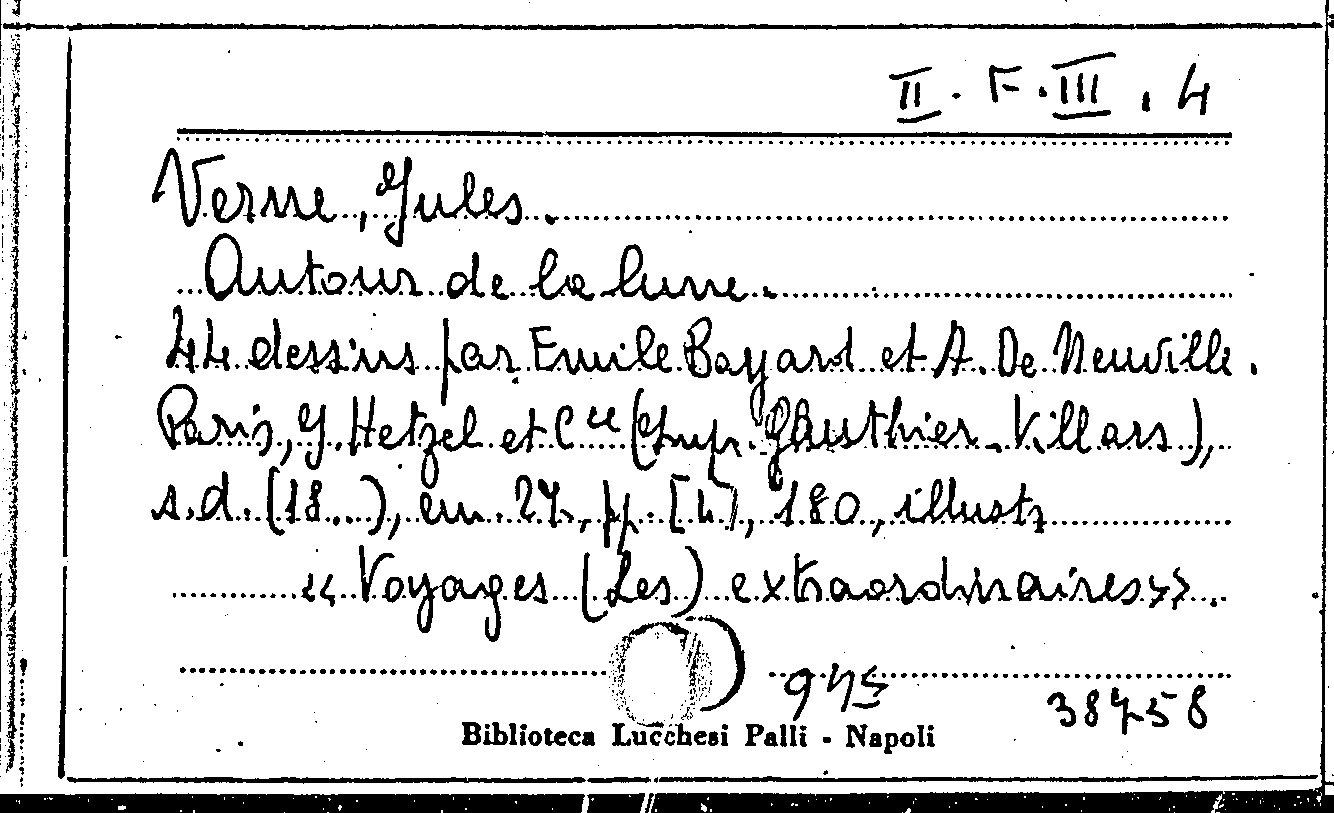 II. F. III. 4
Verne, Jules.
Autour de la lune.
44 dessins par Emile Bayard et A. De Neuville.
Paris, J. Hetzel et Cie (Imp. Gauthier-Villars),
s.d. (18..), cm. 27, pp. [4], 180, illustr
«Voyages (Les) extraordinaires».
38758
Biblioteca Lucchesi Palli - Napoli